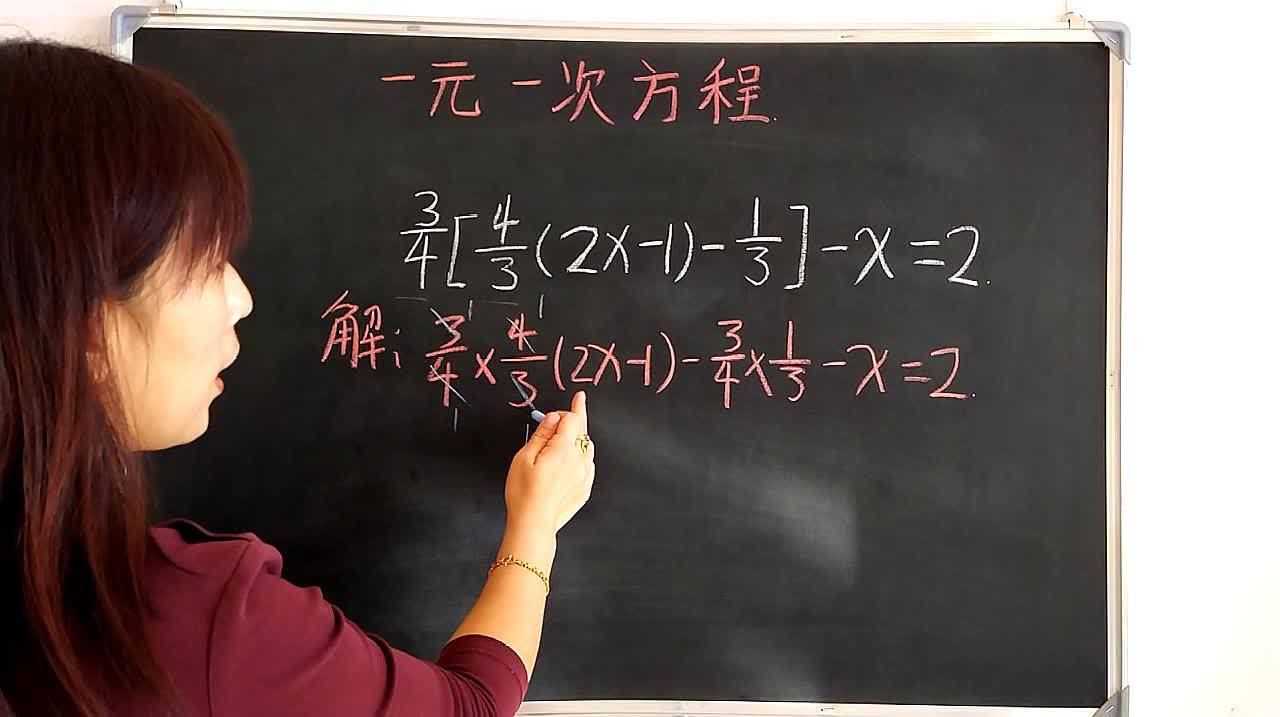 一元一次方程.
3/4[4/3(2x-1)-1/3]-x=2.
解: 3/4×4/3(2x-1)-3/4×1/3-x=2.